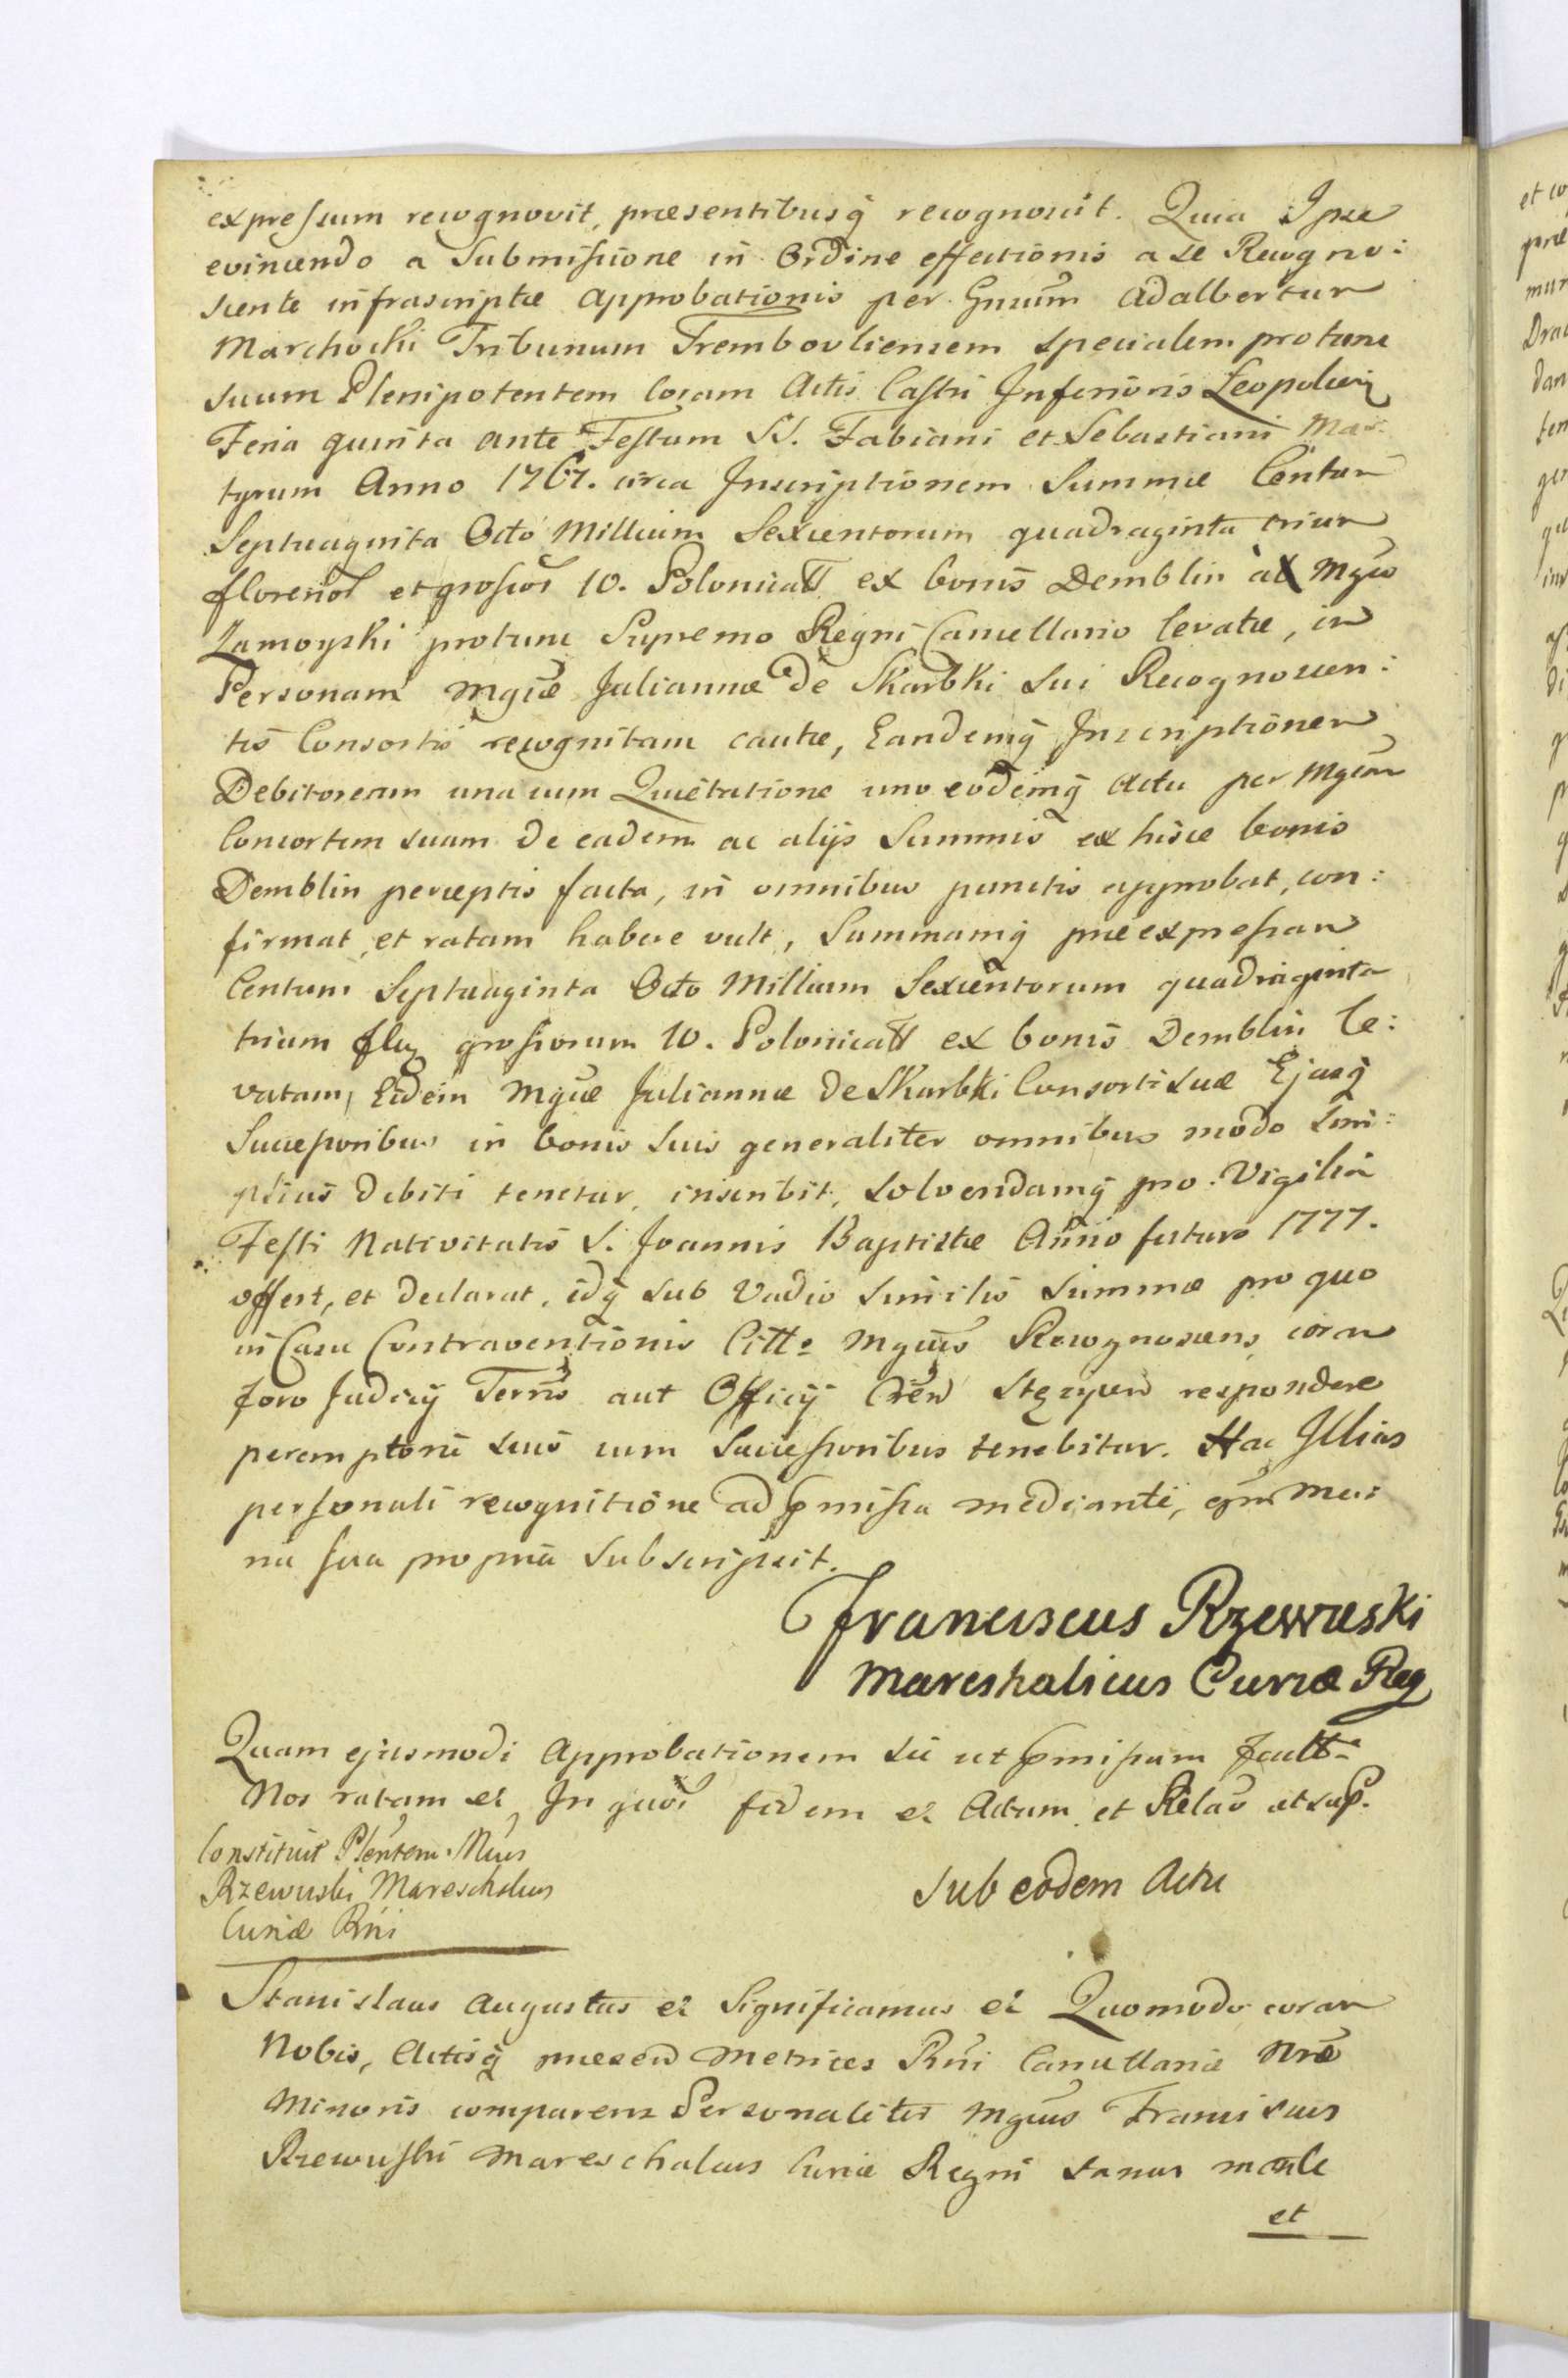 expressum recognovit, praesentibusq̃ recognoscit. Quia Ipse
evincendo a Submissione in Ordine effectionis a se Recogno:
scente infrascriptae Approbationis per Gnsũm Adalbertum
Marchocki Tribunum Trembovliensem specialem protunc
suum Plenipotentem Coram Actis Castri Inferioris Leopolien
Feria quinta ante Festum SS. Fabiani et Sebastiani Mar:
tyrum Anno 1767. circa Inscriptionem Summae Centum
Septuaginta Octo Millium Sexcentorum quadraginta trium
florenoȓ et grossoȓ 10. Polonicatt ex bonis Demblin a Mgco
Zamoyski protunc Supremo Regni Cancellario levatae, in
Personam Mgcae Juliannae de Skarbki sui Recognoscen:
tis Consortis recognitam cautae, Eandemq̃ Inscriptionem
Debitoream una cum Quietatione uno eodemq̃ Actu per Mgcam
Consortem suam de eadem ac alijs Summis ex hisce bonis
Demblin perceptis facta, in omnibus punctis approbat, con:
firmat, et ratam habere vult, Summamq̃ praeexpressam
Centum Septuaginta Octo Millium Sexcentorum quadraginta
trium flor grossorum 10. Polonicatt ex bonis Demblin le:
vatam, Eidem Mgcae Juliannae de Skarbki Consorti suae Ejusq̃
Successoribus in bonis suis generaliter omnibus modo sim:
plicis debiti tenetur, inscribit, solvendamq̃ pro Vigilia
Festi Nativitatis S. Joannis Baptistae Anno futuro 1777.
offert, et declarat, idq̃ sub Vadio similis summae pro quo
in Casu Contraventionis Citto Mgcus Recognoscens coram
foro Judicij Terris aut Officij Cren Stęzycen respondere
peremptorie suis cum Successoribus tenebitur. Hac Illius
personali recognitione ad pmissa mediante, qm Ma:
nu sua propria Subscripsit.
Franciscus Rzewuski
Mareshalicus Curiae Reg
Quam ejusmodi Approbationem sic ut pmissum
Nos ratam etc In quoȓ fidem etc Actum et Relaõ ut sup.
Constituit Plentem Mcus
Rzewuski Mareschalcus
Curiae Rni
Sub eodem Actu
Stanislaus Augustus etc Significamus etc Quomodo coram
Nobis, Actisq̃ praesen Metrices Rni Cancellariae Nrae
Minoris comparens Personaliter Mgcus Franciscus
Rzewuski Mareschalcus Curiae Regni sanus mente
et